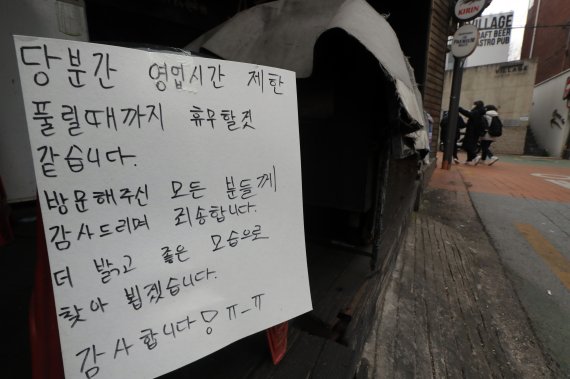 당분간 영업시간 제한
풀릴때까지 휴무할껏
같습니다.
방문해주신 모든 분들께
감사드리며 죄송합니다.
더 밝고 좋은 모습으로
찾아 뵙겠습니다.
감사합니다♡ ㅠ_ㅠ
KIRIN
VILLAGE
CRAFT BEER
GASTRO PUB
VILLAGE